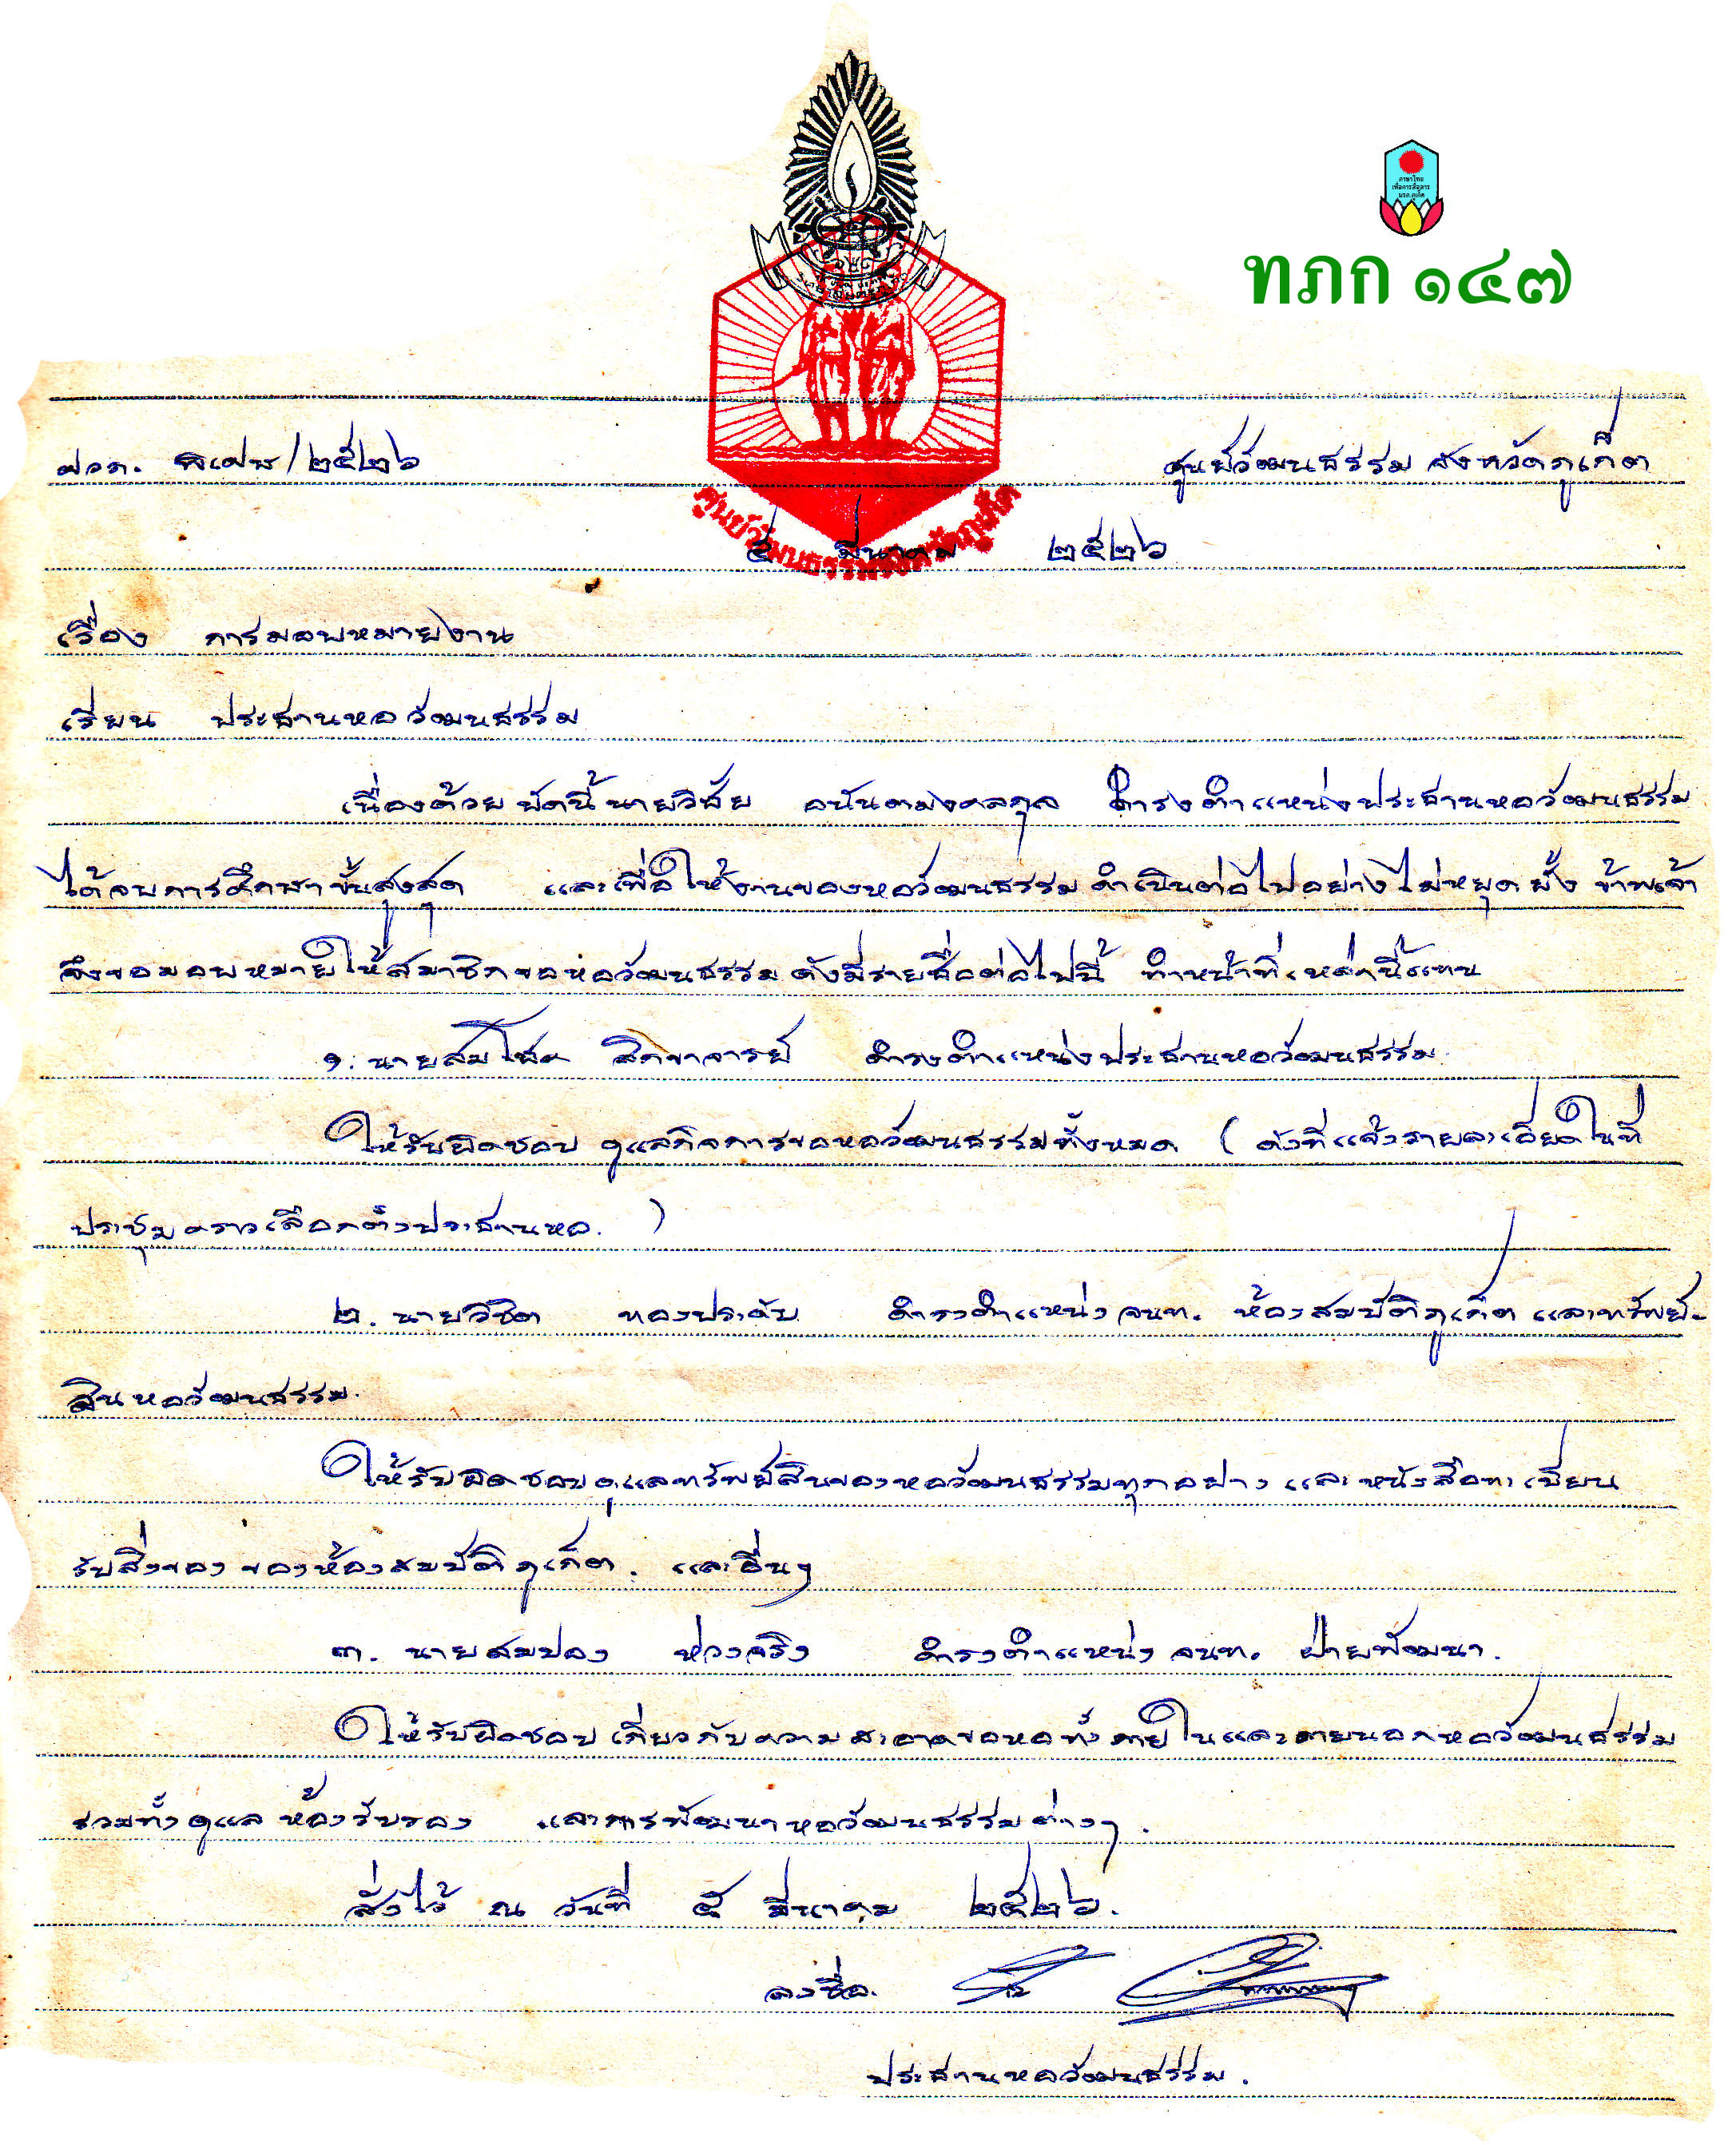 ภาษาไทย
เพื่อการสื่อสาร
มรภ.ภูเก็ต
ทภก ๑๔๗
ศวภ. พิเศษ/๒๕๒๖
ศูนย์วัฒนธรรม จังหวัดภูเก็ต
ศูนย์วัฒนธรรมจังหวัดภูเก็ต
๕ มีนาคม ๒๕๒๖
เรื่อง การมอบหมายงาน
เรียน ประธานหอวัฒนธรรม
เนื่องด้วย บัดนี้ นายวิชัย อนันตมงคลกุล ดำรงตำแหน่งประธานหอวัฒนธรรม
ได้จบการศึกษาขั้นสูงสุด และเพื่อให้งานของหอวัฒนธรรมดำเนินต่อไปอย่างไม่หยุดยั้ง ข้าพเจ้า
จึงขอมอบหมายให้สมาชิกของหอวัฒนธรรม ดังมีรายชื่อต่อไปนี้ ทำหน้าที่เหล่านี้แทน
๑. นายสมโชค สิกขาจารย์ ดำรงตำแหน่งประธานหอวัฒนธรรม.
ให้รับผิดชอบ ดูแลกิจการของหอวัฒนธรรมทั้งหมด ( ดังที่แจ้งรายละเอียดในที่
ประชุมคราวเลือกตั้งประธานหอ. )
๒. นายวิชิต ทองประดับ ดำรงตำแหน่ง จนท. ห้องสมบัติภูเก็ต และทรัพย์-
สินหอวัฒนธรรม.
ให้รับผิดชอบดูแลทรัพย์สินของหอวัฒนธรรมทุกอย่าง และหนังสือทะเบียน
รับสิ่งของ ของห้องสมบัติภูเก็ต. และอื่นๆ
๓. นายสมปอง ห่วงจริง ดำรงตำแหน่ง จนท. ฝ่ายพัฒนา.
ให้รับผิดชอบ เกี่ยวกับความสะอาดของหอทั้งภายในและภายนอกหอวัฒนธรรม
รวมทั้งดูแล ห้องรับรอง และการพัฒนาหอวัฒนธรรมต่างๆ.
สั่งไว้ ณ วันที่ ๕ มีนาคม ๒๕๒๖.
ลงชื่อ.
ประธานหอวัฒนธรรม.